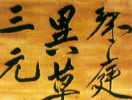 庭
異草
三元